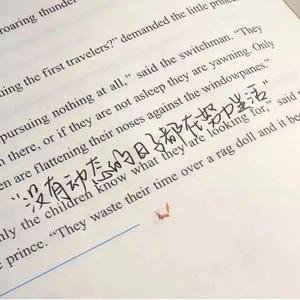 roaring thunder
uing the first travelers?" demanded the little prin
pursuing nothing at all," said the switchman. "They
n there, or if they are not asleep they are yawning. Only
en are flattening their noses against the windowpanes."
"没有动态的日子都在努力生活"
nly the children know what they are looking for," said
e prince. "They waste their time over a rag doll and it be